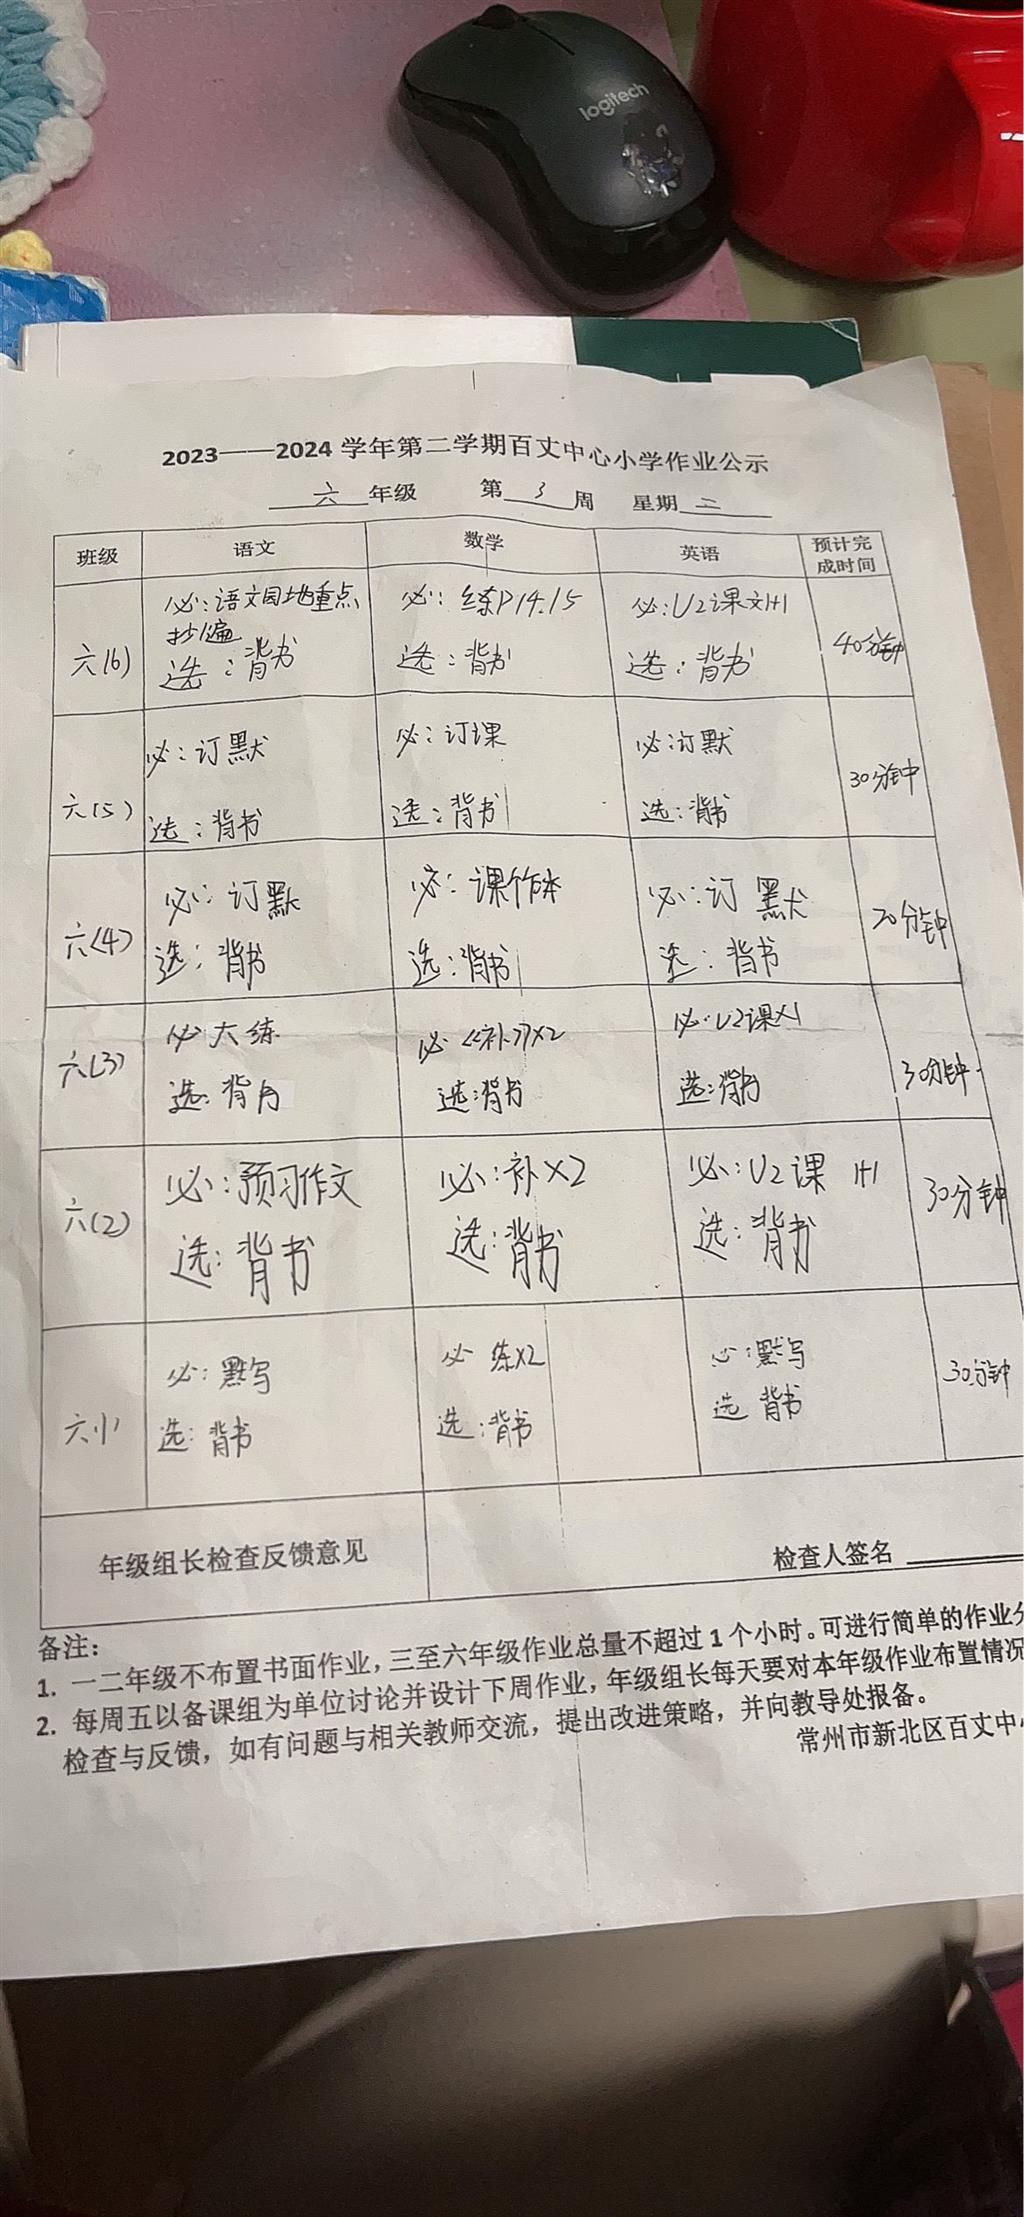 logitech
2023——2024学年第二学期百丈中心小学作业公示
六 年级 第 3 周 星期 二
班级 语文 数学 英语 预计完成时间
六(6) 必:语文园地重点抄1遍 必:练P14.15 必:U2课文1+1 40分钟
选:背书 选:背书 选:背书
六(5) 必:订默 必:订课 必:订默 30分钟
选:背书 选:背书 选:背书
六(4) 必:订默 必:课作本 必:订默 20分钟
选:背书 选:背书 选:背书
六(3) 必 大练 必《补》×2 必:U2课×1 30分钟
选:背书 选:背书 选:背书
六(2) 必:预习作文 必:补×2 必:U2课 1+1 30分钟
选:背书 选:背书 选:背书
六(1) 必:默写 必 练×2 必:默写 30分钟
选:背书 选:背书 选 背书
年级组长检查反馈意见 检查人签名
备注:
1. 一二年级不布置书面作业,三至六年级作业总量不超过1个小时。可进行简单的作业分
2. 每周五以备课组为单位讨论并设计下周作业,年级组长每天要对本年级作业布置情况
检查与反馈,如有问题与相关教师交流,提出改进策略,并向教导处报备。
常州市新北区百丈中心